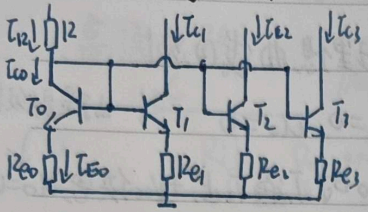 I12 12 Ic1 Ic2 Ic3
Ic0
T0 T1 T2 T3
Re0 IE0 Re1 Re2 Re3